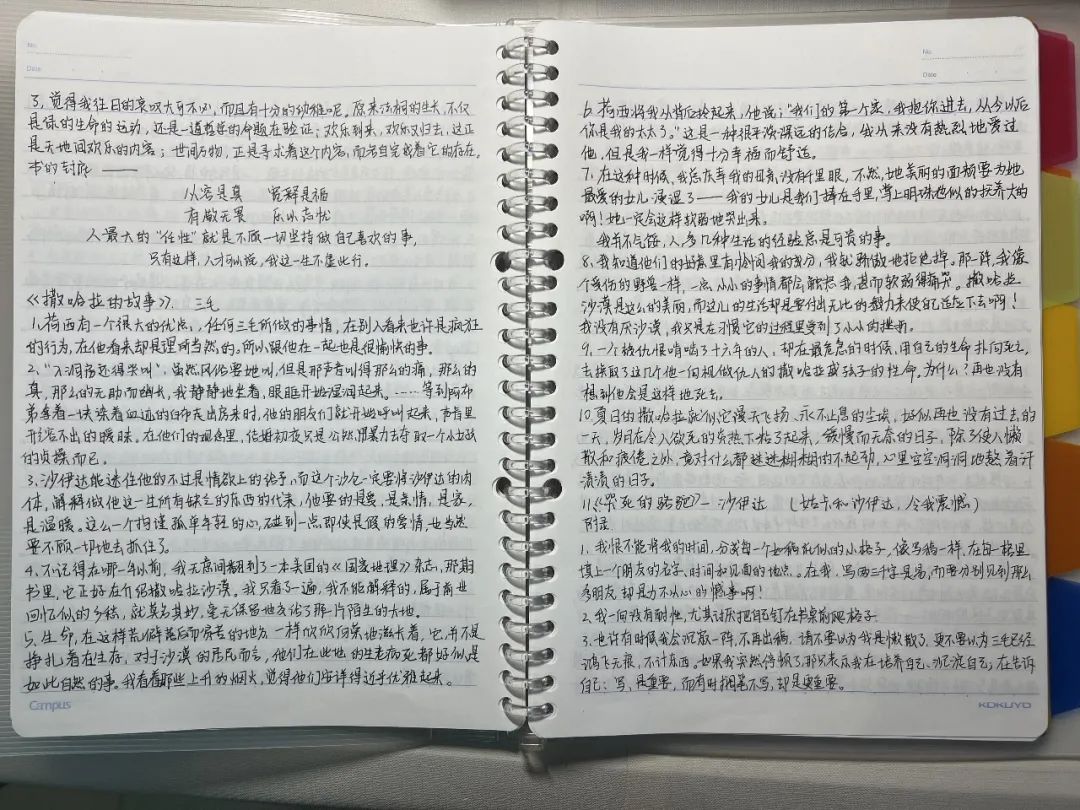 No.
Date
3、觉得我往日的哀叹大可不必，而且有十分的幼稚呢。原来法桐的生长，不仅
是绿的生命的运动，还是一道哲学的命题在验证：欢乐到来，欢乐又归去，这正
是天地间欢乐的内容；世间万物，正是寻求着这个内容，而各自完成着它的存在。
书的封底 ——
从容是真 宽解是福
有傲无畏 乐以忘忧
人最大的“任性”就是不顾一切坚持做自己喜欢的事，
只有这样，人才可以说，我这一生不虚此行。
《撒哈拉的故事》. 三毛
1、荷西有一个很大的优点，任何三毛所做的事情，在别人看来也许是疯狂
的行为，在他看来却是理所当然的。所以跟他在一起也是很愉快的事。
2、“入洞房还得哭叫”，虽然风俗要她叫，但是那声音叫得那么的痛，那么的
真，那么的无助而幽长，我静静地坐着，眼眶开始湿润起来。……等到阿布
弟拿着一块染着血迹的白布走出房来时，他的朋友们就开始呼叫起来，声音里
形容不出的暧昧。在他们的观念里，结婚初夜只是公然用暴力去夺取一个小女孩
的贞操而已。
3、沙伊达能迷住他的不过是情欲上的给予，而这个沙仑一定要将沙伊达的肉
体，解释做他这一生所有缺乏的东西的代表，他要的是爱，是亲情，是家，
是温暖。这么一个拘谨孤单年轻的心，碰到一点即使是假的爱情，也当然
要不顾一切地去抓住了。
4、不记得在哪一年以前，我无意间翻到了一本美国的《国家地理》杂志，那期
书里，它正好在介绍撒哈拉沙漠。我只看了一遍，我不能解释的，属于前世
回忆似的乡愁，就莫名其妙，毫无保留地交给了那一片陌生的大地。
5、生命，在这样荒僻落后而贫苦的地方，一样欣欣向荣地滋长着，它，并不是
挣扎着在生存，对于沙漠的居民而言，他们在此地的生老病死都好似是
如此自然的事。我看着那些上升的烟火，觉得他们安详得近乎优雅起来。
Campus
No.
Date
6、荷西将我从背后拎起来，他说：“我们的第一个家，我抱你进去，从今以后
你是我的太太了。”这是一种很平淡深远的结合，我从来没有热烈地爱过
他，但是我一样觉得十分幸福而舒适。
7、在这种时候，我总庆幸我的母亲没有千里眼，不然，她美丽的面颊要为她
最爱的女儿浸湿了——我的女儿是我们捧在手里，掌上明珠也似的扶养大的
啊！她一定会这样软弱地哭出来。
我并不气馁，人，多几种生活的经验总是可贵的事。
8、我知道他们的好意里有怜悯我的成分，我就骄傲地拒绝掉。那一阵，我像
个受伤的野兽一样，一点小小的事情都会触怒我，甚而软弱得痛哭。撒哈拉
沙漠是这么的美丽，而这儿的生活却是要付出无比的毅力来使自己适应下去啊！
我没有厌沙漠，我只是在习惯它的过程里受到了小小的挫折。
9、一个被仇恨啃啮了十六年的人，却在最危急的时候，用自己的生命扑向死亡，
去换取了这几个他一向视做仇人的撒哈拉威孩子的性命。为什么？再也没有
想到他会是这样地死去。
10、夏日的撒哈拉就似它漫天飞扬、永不止息的尘埃，好似再也没有过去的
一天，岁月在令人欲死的炎热下粘了起来，缓慢而无奈的日子，除了使人懒
散和疲倦之外，竟对什么都迷迷糊糊的不起劲，心里空空洞洞地熬着汗
渍渍的日子。
11、《哭死的骆驼》- 沙伊达 （姑卡和沙伊达，令我震憾）
附录
1、我恨不能将我的时间，分成每一个如稿纸似的小格子，像写稿一样，在每一格里
填上一个朋友的名字、时间和见面的地点。在我，写两三个字是易，而要分别见到那么
多朋友，却是力不从心的憾事啊！
2、我一向没有耐性，尤其讨厌把自己钉在书桌前爬格子。
3、也许有时候我会沉寂一阵，不再出稿，请不要以为我是懒散了，更不要以为三毛已经
鸿飞无痕，不计东西。如果我突然停顿了，那只表示我在培养自己，沉淀自己，在告诉
自己：写，是重要，而有时搁笔不写，却是更重要。
KOKUYO